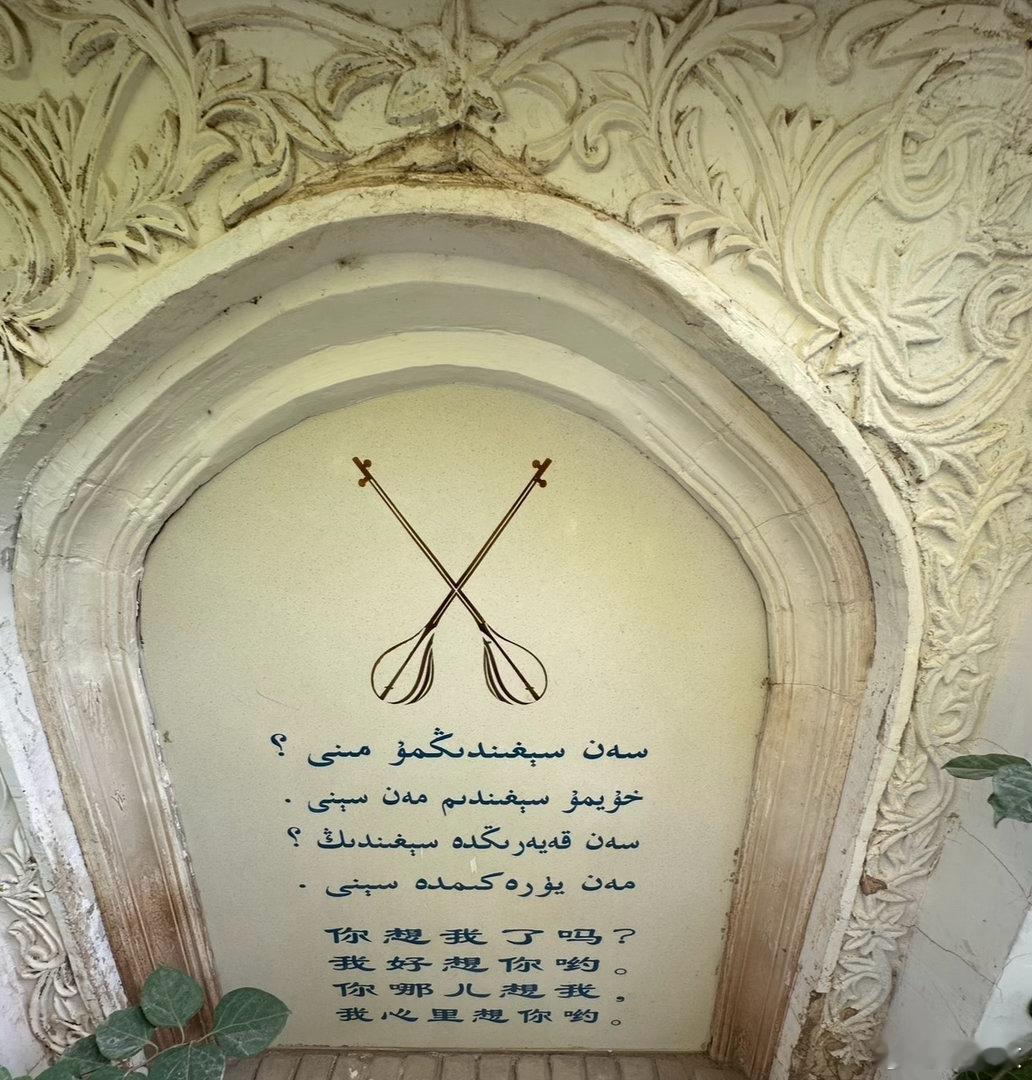 سەن سېغىندىڭمۇ مىنى ؟
خۇيمۇ سېغىندىم مەن سېنى .
سەن قەيەرىڭدە سېغىندىڭ ؟
مەن يۈرەكىمدە سېنى .
你想我了吗？
我好想你哟。
你哪儿想我，
我心里想你哟。